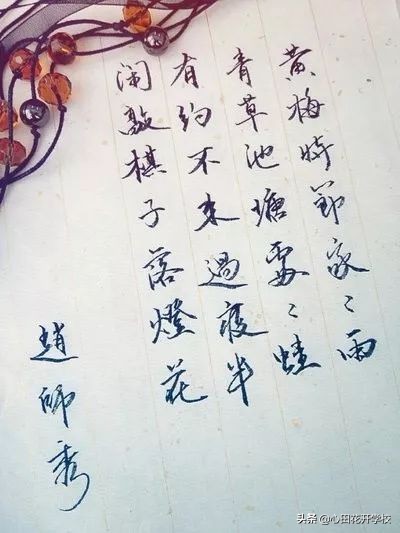 黄梅時節家〻雨
青草池塘處〻蛙
有約不来過夜半
闲敲棋子落燈花
趙師秀
头条 @心田花开学校